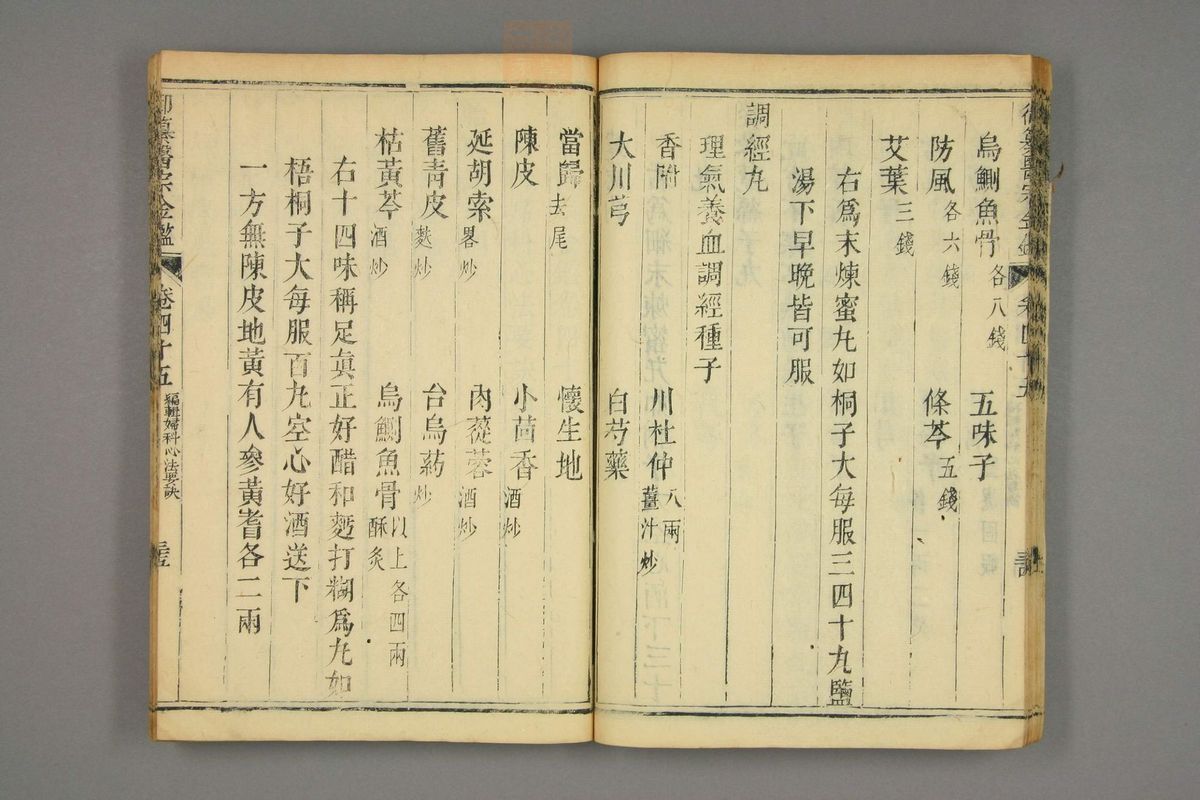 烏鰂魚骨各八錢 五味子
防風各六錢 條芩五錢
艾葉三錢
右爲末煉蜜丸如桐子大每服三四十丸鹽
湯下早晚皆可服
調經丸
理氣養血調經種子
香附 川杜仲八兩薑汁炒
大川芎 白芍藥
當歸去尾 懷生地
陳皮 小茴香酒炒
延胡索畧炒 肉蓯蓉酒炒
舊靑皮麩炒 台烏药炒
枯黃芩酒炒 烏鰂魚骨以上各四兩酥炙
右十四味稱足眞正好醋和麪打糊爲丸如
梧桐子大每服百丸空心好酒送下
一方無陳皮地黃有人參黃耆各二兩
御纂醫宗金鑑 卷四十五 編輯婦科心法要訣